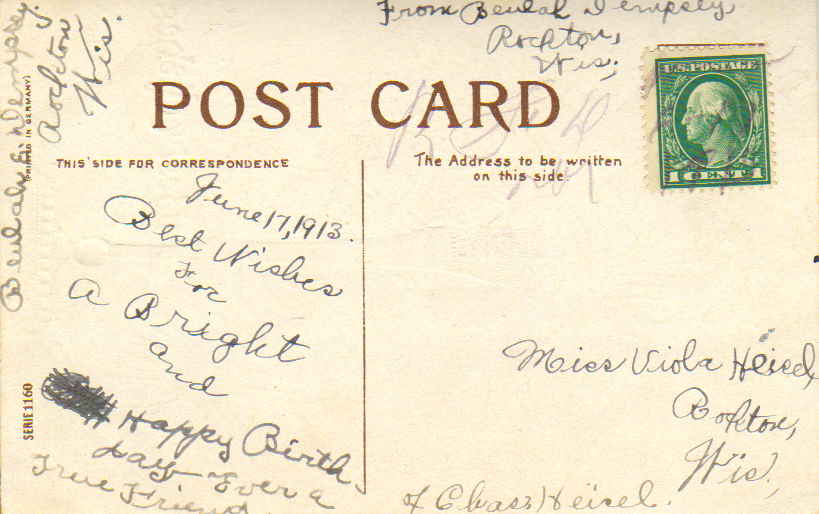 From Beulah Dempsey,
Rockton,
Wis,
Beulah E. Dempsey.
Rockton
Wis.
(PRINTED IN GERMANY)
POST CARD
U.S. POSTAGE
1 CENT 1
THIS SIDE FOR CORRESPONDENCE
The Address to be written
on this side
June 17, 1913.
Best Wishes
For
A Bright
and
Happy Birth
day Ever a
True Friend
SERIE 1160
Miss Viola Heisel,
Rockton,
Wis,